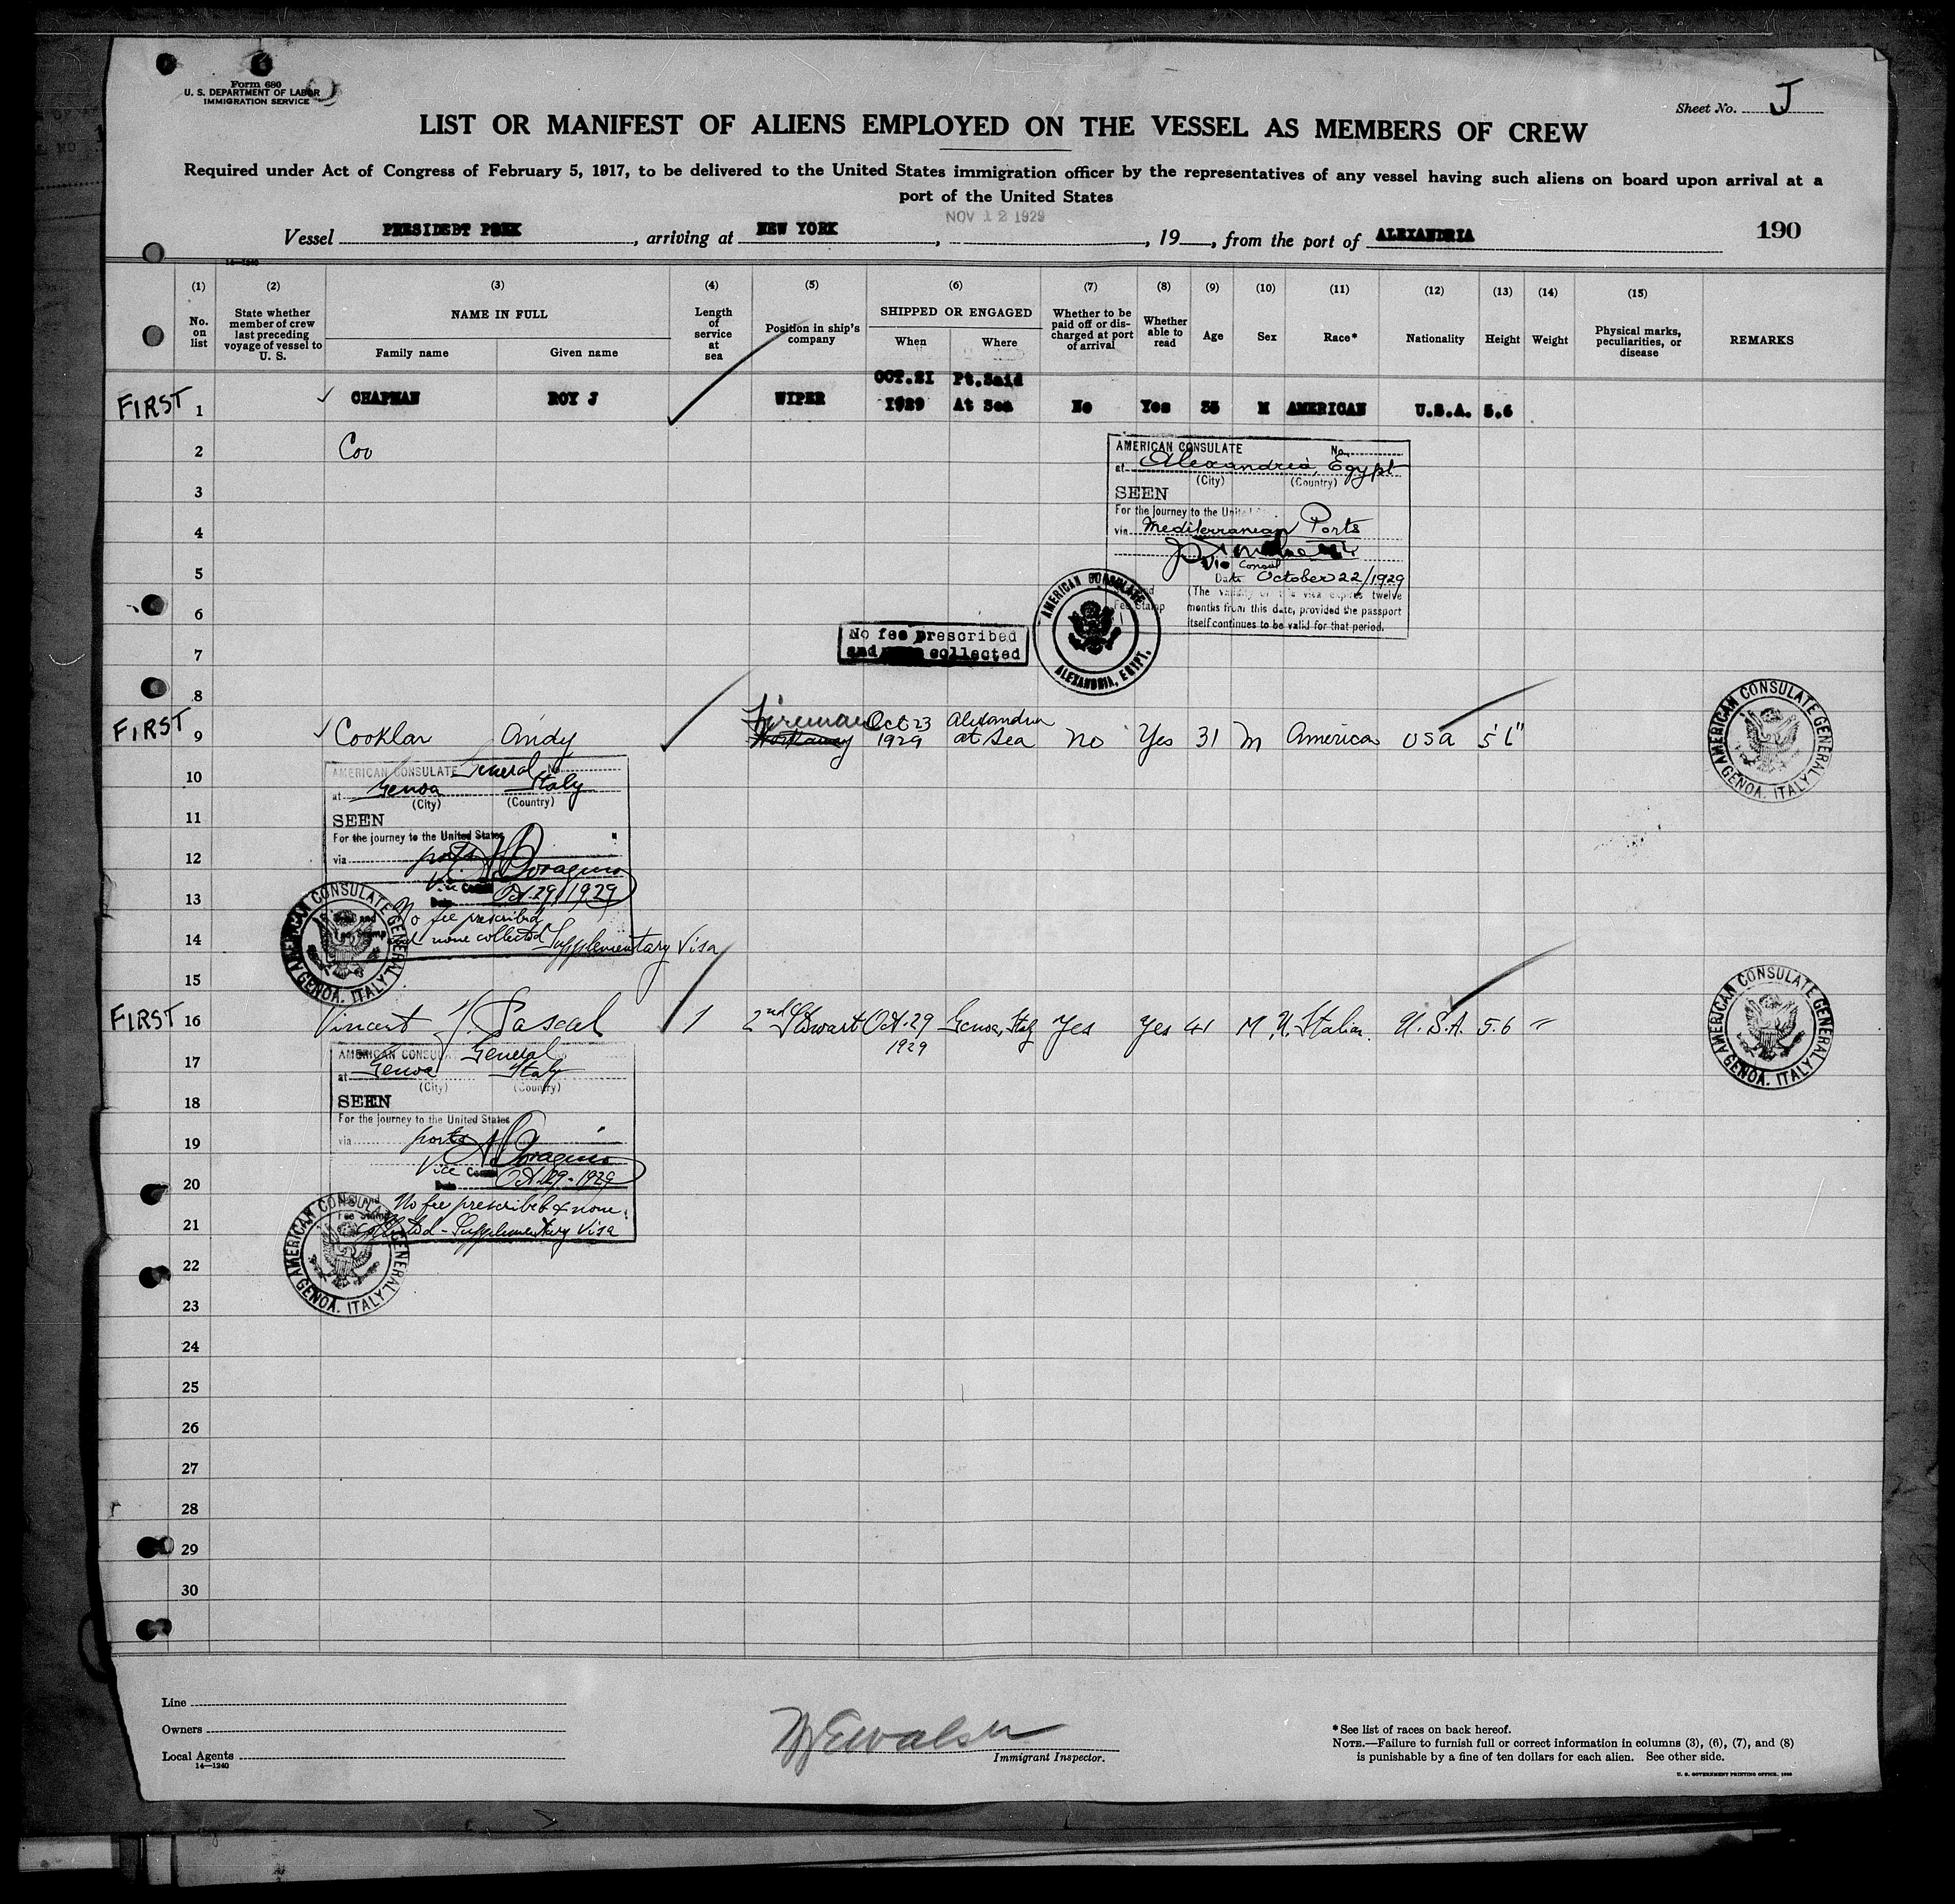 Form 680
U. S. DEPARTMENT OF LABOR
IMMIGRATION SERVICE
Sheet No. J
LIST OR MANIFEST OF ALIENS EMPLOYED ON THE VESSEL AS MEMBERS OF CREW
Required under Act of Congress of February 5, 1917, to be delivered to the United States immigration officer by the representatives of any vessel having such aliens on board upon arrival at a
port of the United States
NOV 12 1929
Vessel PRESIDEDT POKK, arriving at NEW YORK, , 19 , from the port of ALEXANDRIA 190
14—1240
(1) (2) (3) (4) (5) (6) (7) (8) (9) (10) (11) (12) (13) (14) (15)
No. on list
State whether member of crew last preceding voyage of vessel to U. S.
NAME IN FULL
Family name Given name
Length of service at sea
Position in ship's company
SHIPPED OR ENGAGED
When Where
Whether to be paid off or discharged at port of arrival
Whether able to read
Age
Sex
Race*
Nationality
Height
Weight
Physical marks, peculiarities, or disease
REMARKS
OCT.21 Pt.Said
FIRST 1 CHAPMAN ROY J WIPER 1929 At Sea No Yes 35 M AMERICAN U.S.A. 5.6
2 Coo
AMERICAN CONSULATE No.
at Alexandria, Egypt
(City) (Country)
3
SEEN
For the journey to the United
4
via Mediterranean Ports
Consul
5
Date October 22/1929
(The validity of this visa expires twelve
Fee Stamp months from this date, provided the passport
itself continues to be valid for that period.
6
AMERICAN CONSULATE
ALEXANDRIA, EGYPT.
No fee prescribed
and collected
7
8
FIRST 9 Cooklar Andy Fireman Workaway Oct 23 1929 Alexandria at Sea No Yes 31 M American USA 5'6"
AMERICAN CONSULATE GENERAL
GENOA. ITALY
10
AMERICAN CONSULATE General No.
at Genoa Italy
(City) (Country)
11
SEEN
For the journey to the United States
12
via ports
Vice Consul
13
Date Oct. 29, 1929
No fee prescribed
14
and none collected Supplementary Visa
AMERICAN CONSULATE GENERAL
GENOA. ITALY
15
FIRST 16 Vincent J. Pascal 1 2nd Stewart Oct. 29 1929 Genoa, Italy Yes Yes 41 M Italian U.S.A. 5.6
AMERICAN CONSULATE GENERAL
GENOA. ITALY
17
AMERICAN CONSULATE General
at Genoa Italy
(City) (Country)
18
SEEN
For the journey to the United States
19
via ports
Vice Consul
20
Date Oct. 29 - 1929
No fee prescribed & none
21
collected - Supplementary Visa
AMERICAN CONSULATE GENERAL
GENOA. ITALY
22
23
24
25
26
27
28
29
30
Line
Owners
Local Agents
14—1240
W E Walsh
Immigrant Inspector.
*See list of races on back hereof.
NOTE.—Failure to furnish full or correct information in columns (3), (6), (7), and (8)
is punishable by a fine of ten dollars for each alien. See other side.
U. S. GOVERNMENT PRINTING OFFICE